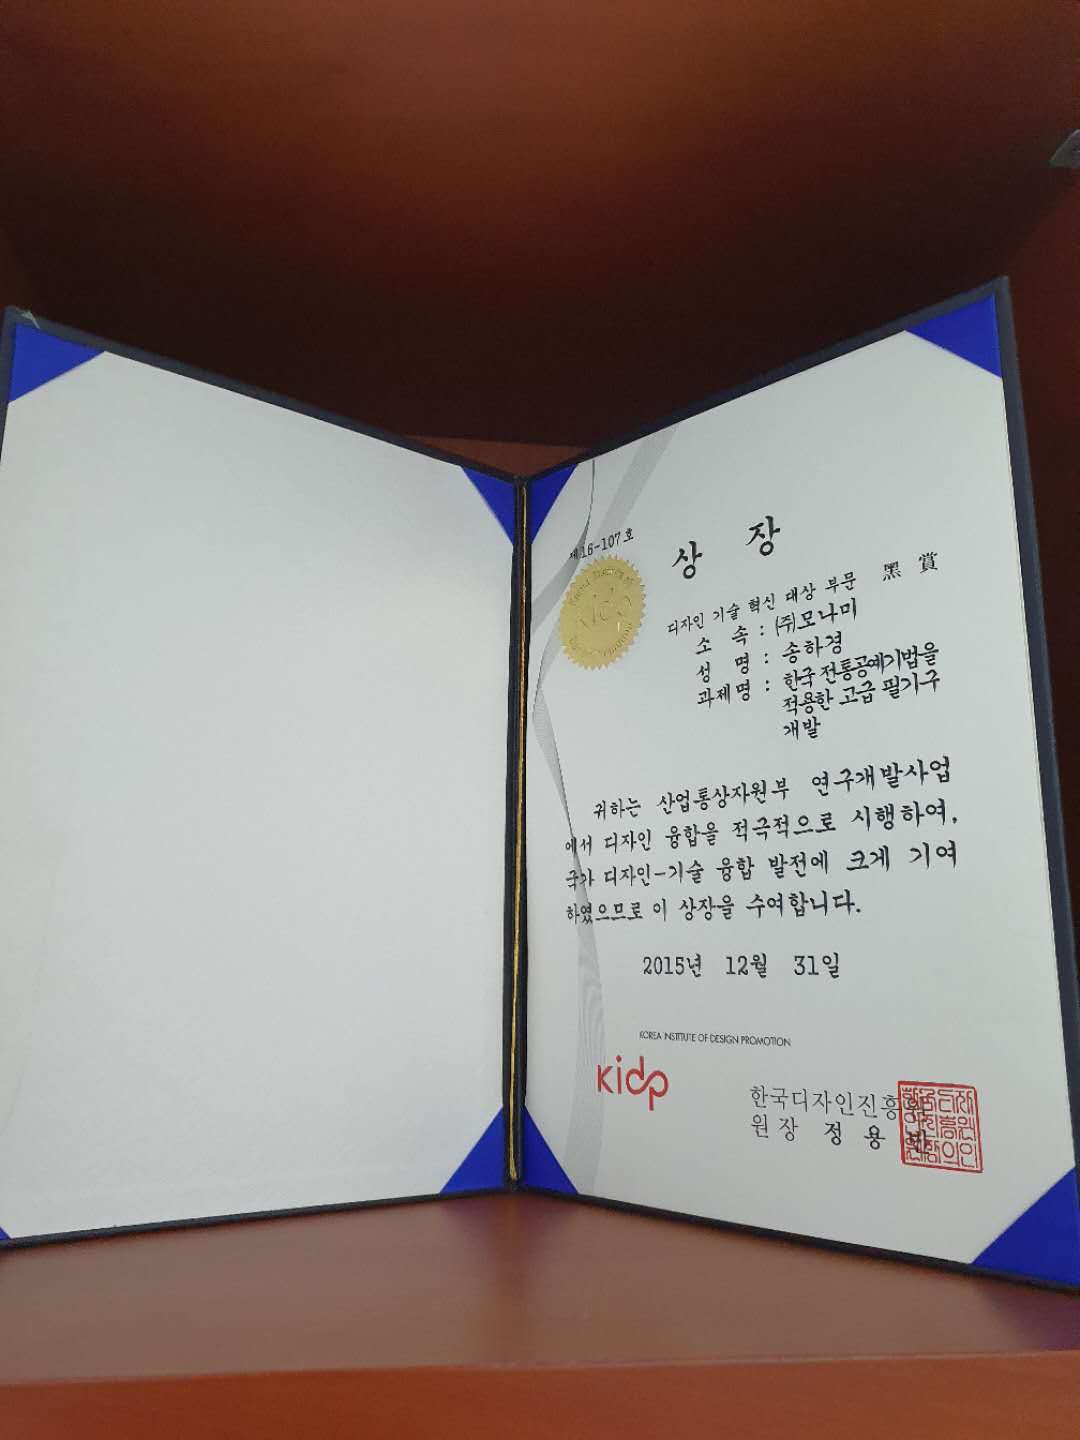 제16-107호
상 장
디자인 기술 혁신 대상 부문 黑 賞
소 속 : (주)모나미
성 명 : 송하경
과제명 : 한국 전통공예기법을
적용한 고급 필기구
개발
귀하는 산업통상자원부 연구개발사업
에서 디자인 융합을 적극적으로 시행하여,
국가 디자인-기술 융합 발전에 크게 기여
하였으므로 이 상장을 수여합니다.
2015년 12월 31일
KOREA INSTITUTE OF DESIGN PROMOTION
kidp
한국디자인진흥원
원장 정 용 빈